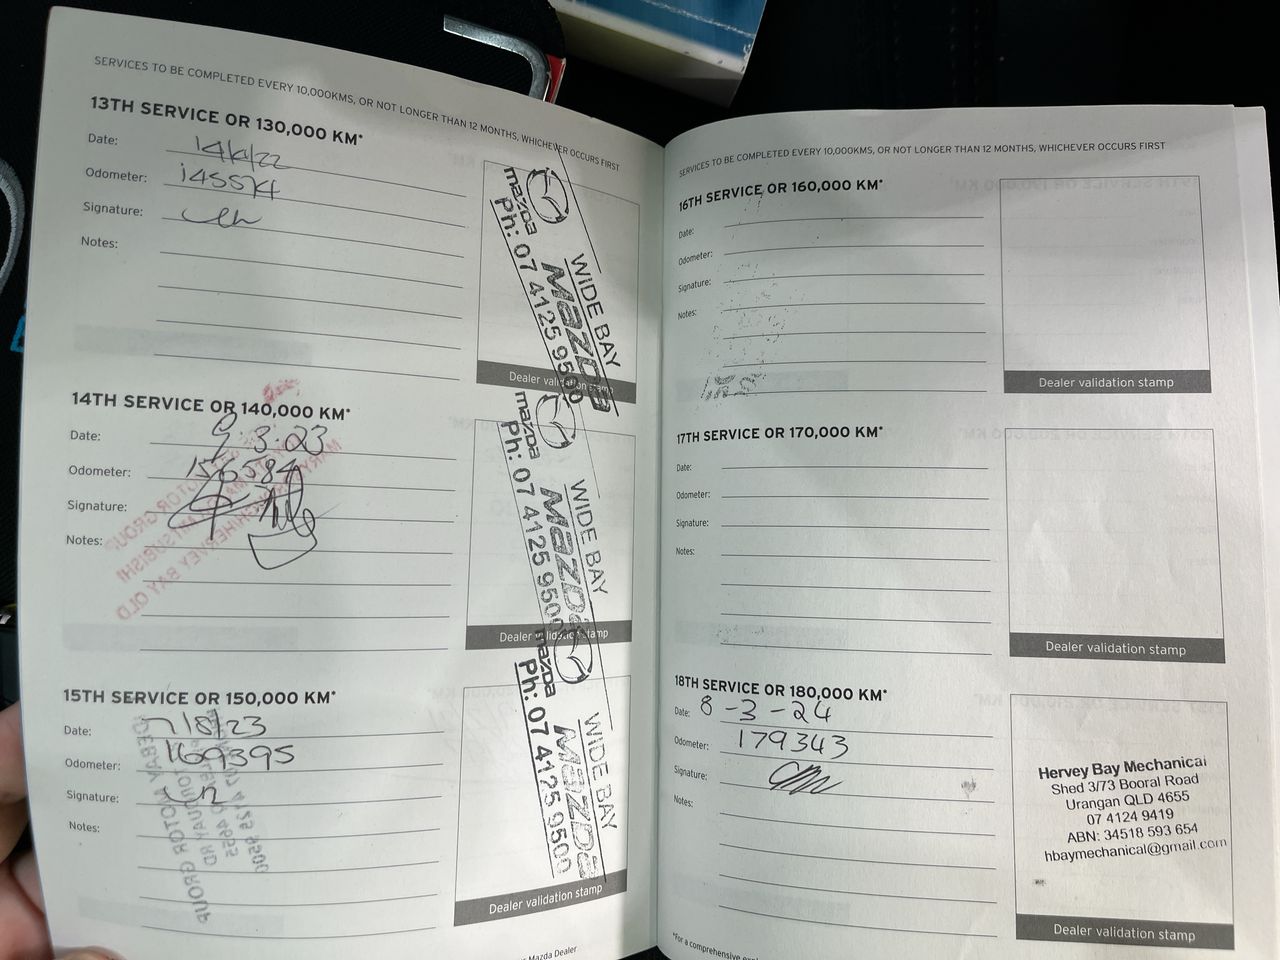 SERVICES TO BE COMPLETED EVERY 10,000KMS, OR NOT LONGER THAN 12 MONTHS, WHICHEVER OCCURS FIRST
13TH SERVICE OR 130,000 KM*
Date:
Odometer: 145574
Signature:
Notes:
mazda
WIDE BAY
mazda
Ph: 07 4125 9500
Dealer validation stamp
14TH SERVICE OR 140,000 KM*
Date: 9.3.23
Odometer: 156384
Signature:
Notes:
MOTOR GROUP
MITSUBISHI
HERVEY BAY QLD
mazda
WIDE BAY
mazda
Ph: 07 4125 9500
Dealer validation stamp
15TH SERVICE OR 150,000 KM*
Date: 7/8/23
Odometer: 169395
Signature:
Notes:
MOTOR GROUP
4655
mazda
WIDE BAY
mazda
Ph: 07 4125 9500
Dealer validation stamp
Mazda Dealer
SERVICES TO BE COMPLETED EVERY 10,000KMS, OR NOT LONGER THAN 12 MONTHS, WHICHEVER OCCURS FIRST
16TH SERVICE OR 160,000 KM*
Date:
Odometer:
Signature:
Notes:
Dealer validation stamp
17TH SERVICE OR 170,000 KM*
Date:
Odometer:
Signature:
Notes:
Dealer validation stamp
18TH SERVICE OR 180,000 KM*
Date: 8-3-24
Odometer: 179343
Signature:
Notes:
Hervey Bay Mechanical
Shed 3/73 Booral Road
Urangan QLD 4655
07 4124 9419
ABN: 34518 593 654
hbaymechanical@gmail.com
Dealer validation stamp
*For a comprehensive